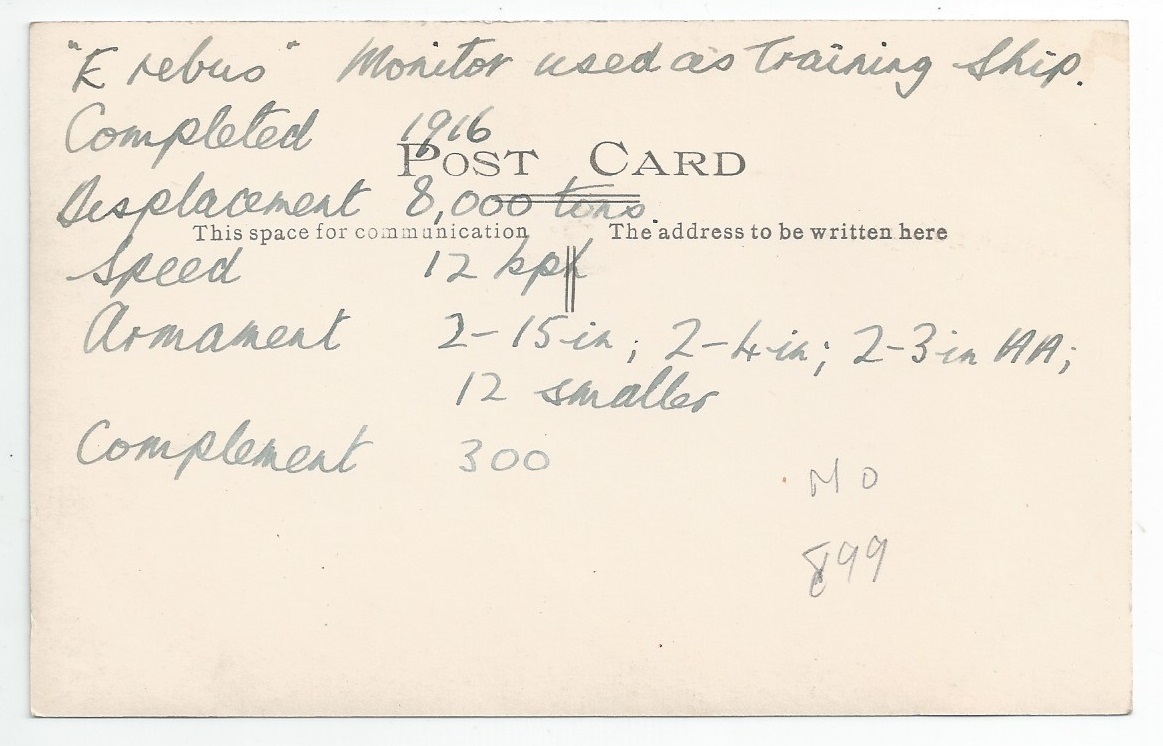 "Erebus" Monitor used as Training Ship.
Completed 1916
POST CARD
Displacement 8,000 tons.
This space for communication The address to be written here
Speed 12 kph
Armament 2-15in; 2-4in; 2-3in AA;
12 smaller
Complement 300
NO
899